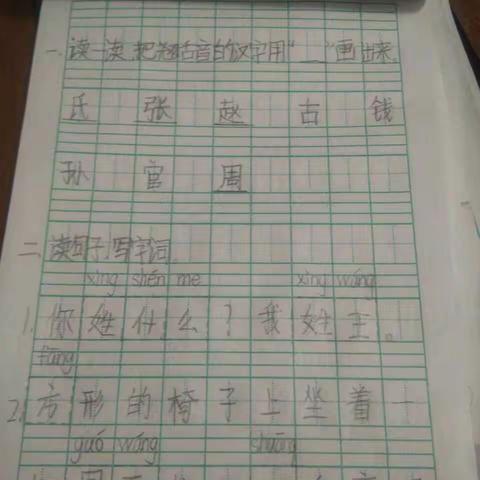 一、读一读,把翘舌音的汉字用“__”画出来。
氏 张 赵 古 钱
孙 官 周
二、读句子,写字词。
xìng shén me xìng wáng
1. 你姓什么?我姓王。
fāng
2. 方形的椅子上坐着一
guó wáng shuāng
国王